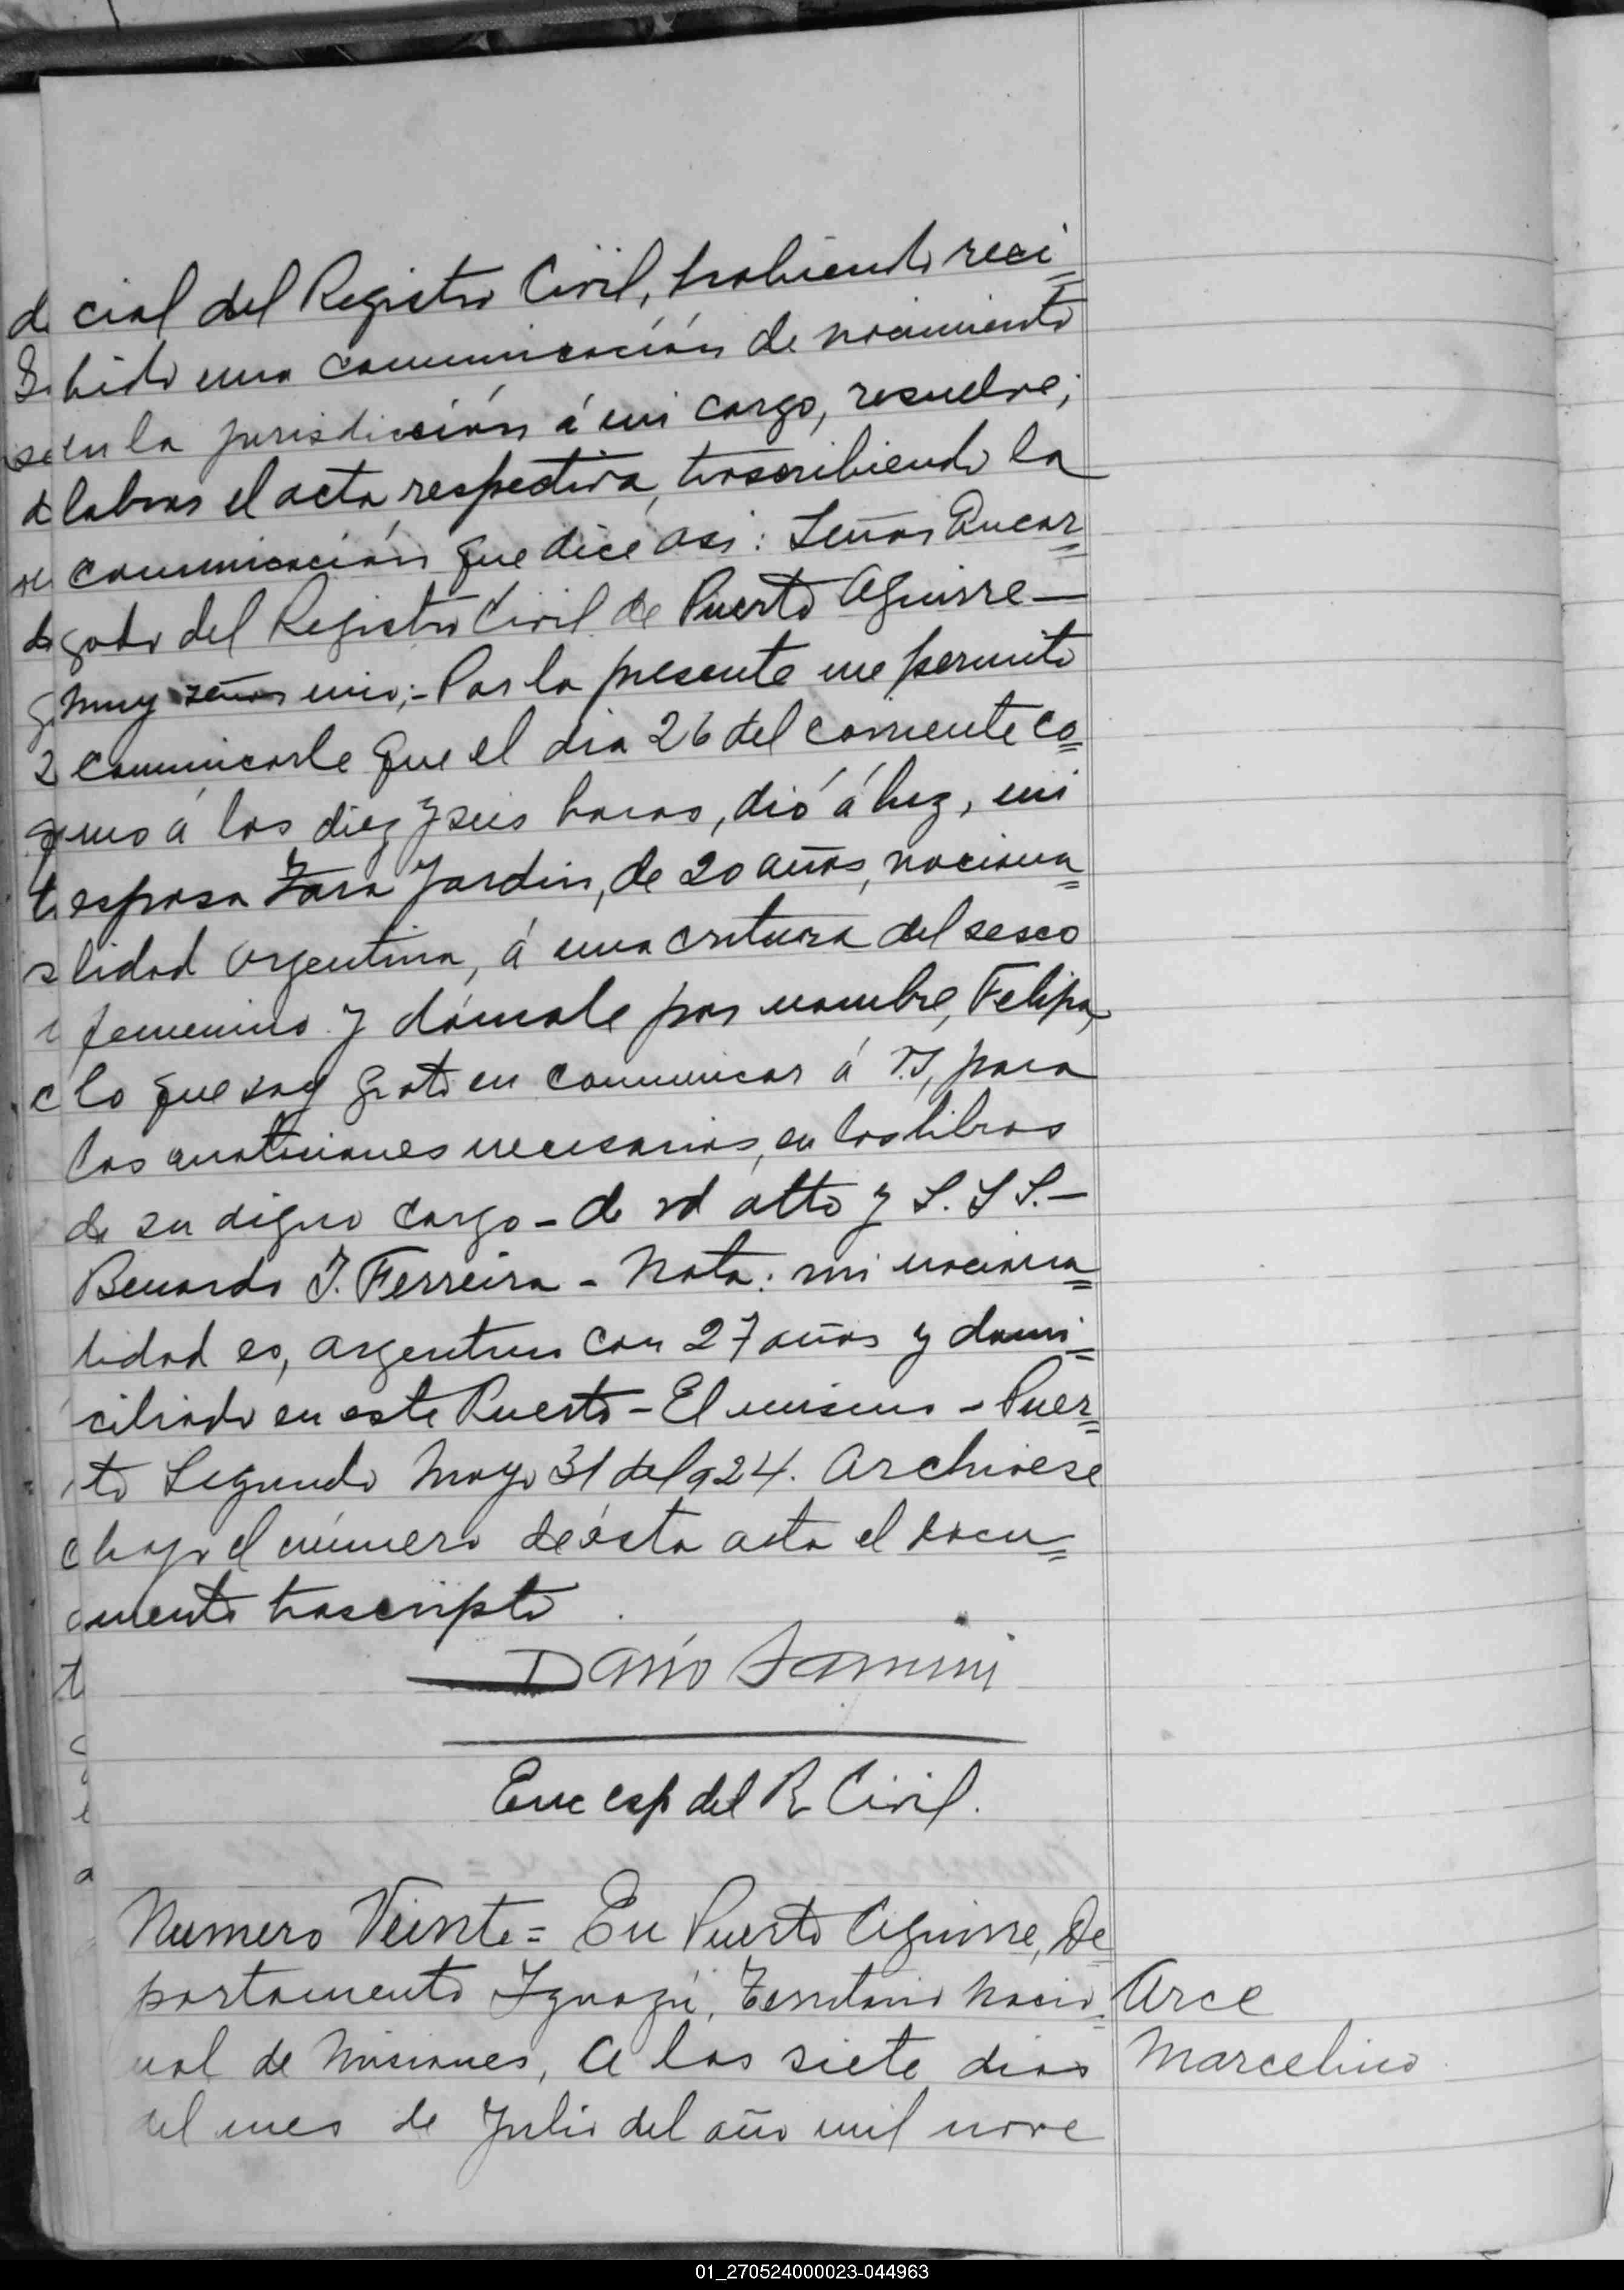 cial del Registro Civil, habiendo reci=
bido una comunicación de nacimiento
en la jurisdicción á mi cargo, resuelve;
labrar el acta respectiva, trascribiendo la
comunicación que dice asi: Señor Encar=
gado del Registro Civil de Puerto Aguirre—
Muy señor mio;- Por la presente me permito
comunicarle que el dia 26 del corriente co=
mo á las diez y seis horas, dió á luz, mi
esposa Zara Jardin, de 20 años, naciona=
lidad argentina, á una critura del sesco
femenino y dámole por nombre, Felipa,
lo que soy grato en comunicar á V.S, para
las anotaciones necesarias, en los libros
de su digno cargo - de vd atto y S. S S.—
Bernardo J. Ferreira - Nota: mi naciona=
lidad es, argentino con 27 años y domi=
ciliado en este Puerto - El mismo - Puer=
to Segundo Mayo 31 del 924. Archivese
bajo el número de ésta acta el docu=
mento trascripto
Dario
Enc esp del R Civil.
Numero Veinte = En Puerto Aguirre, De=
partamento Iguazú, Territorio Nacio=
nal de Misiones, A los siete dias
del mes de Julio del año mil nove
Arce
Marcelino
01_270524000023-044963